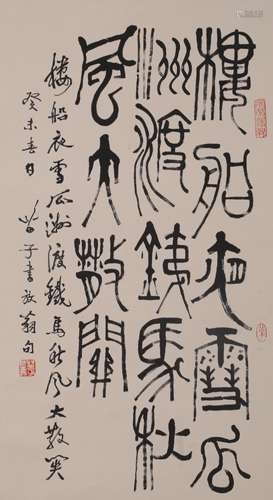 樓船夜雪瓜
洲渡鐵馬秋
風大散關
樓船夜雪瓜洲渡鐵馬秋风大散関
癸未春月 子書放翁句